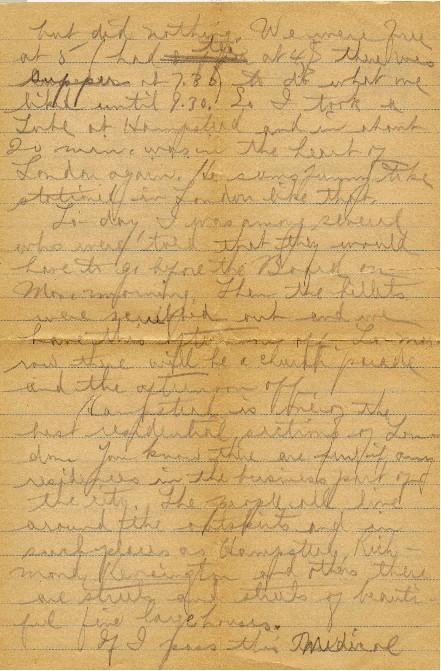 but did nothing. We were free
at 5 (had tea at 4) there was
supper at 7.30) to do what we
liked until 9.30. So I took a
Tube at Hampstead and in about
20 min. was in the heart of
London again.
stationed in London like that.
To-day I was among several
who were told that they would
have to go before the Board on
Mon. morning. Then the billets
were scrubbed out and we
have this afternoon off. To-mor-
row there will be a church parade
and the afternoon off.
Hampstead is one of the
best residential sections of Lon-
don. You know there are few if any
residences in the business part of
the city. The people all live
around the outskirts and in
such places as Hampstead, Rich-
mond, Kensington and others there
are streets and streets of beauti-
ful fine large houses.
If I pass this Medical